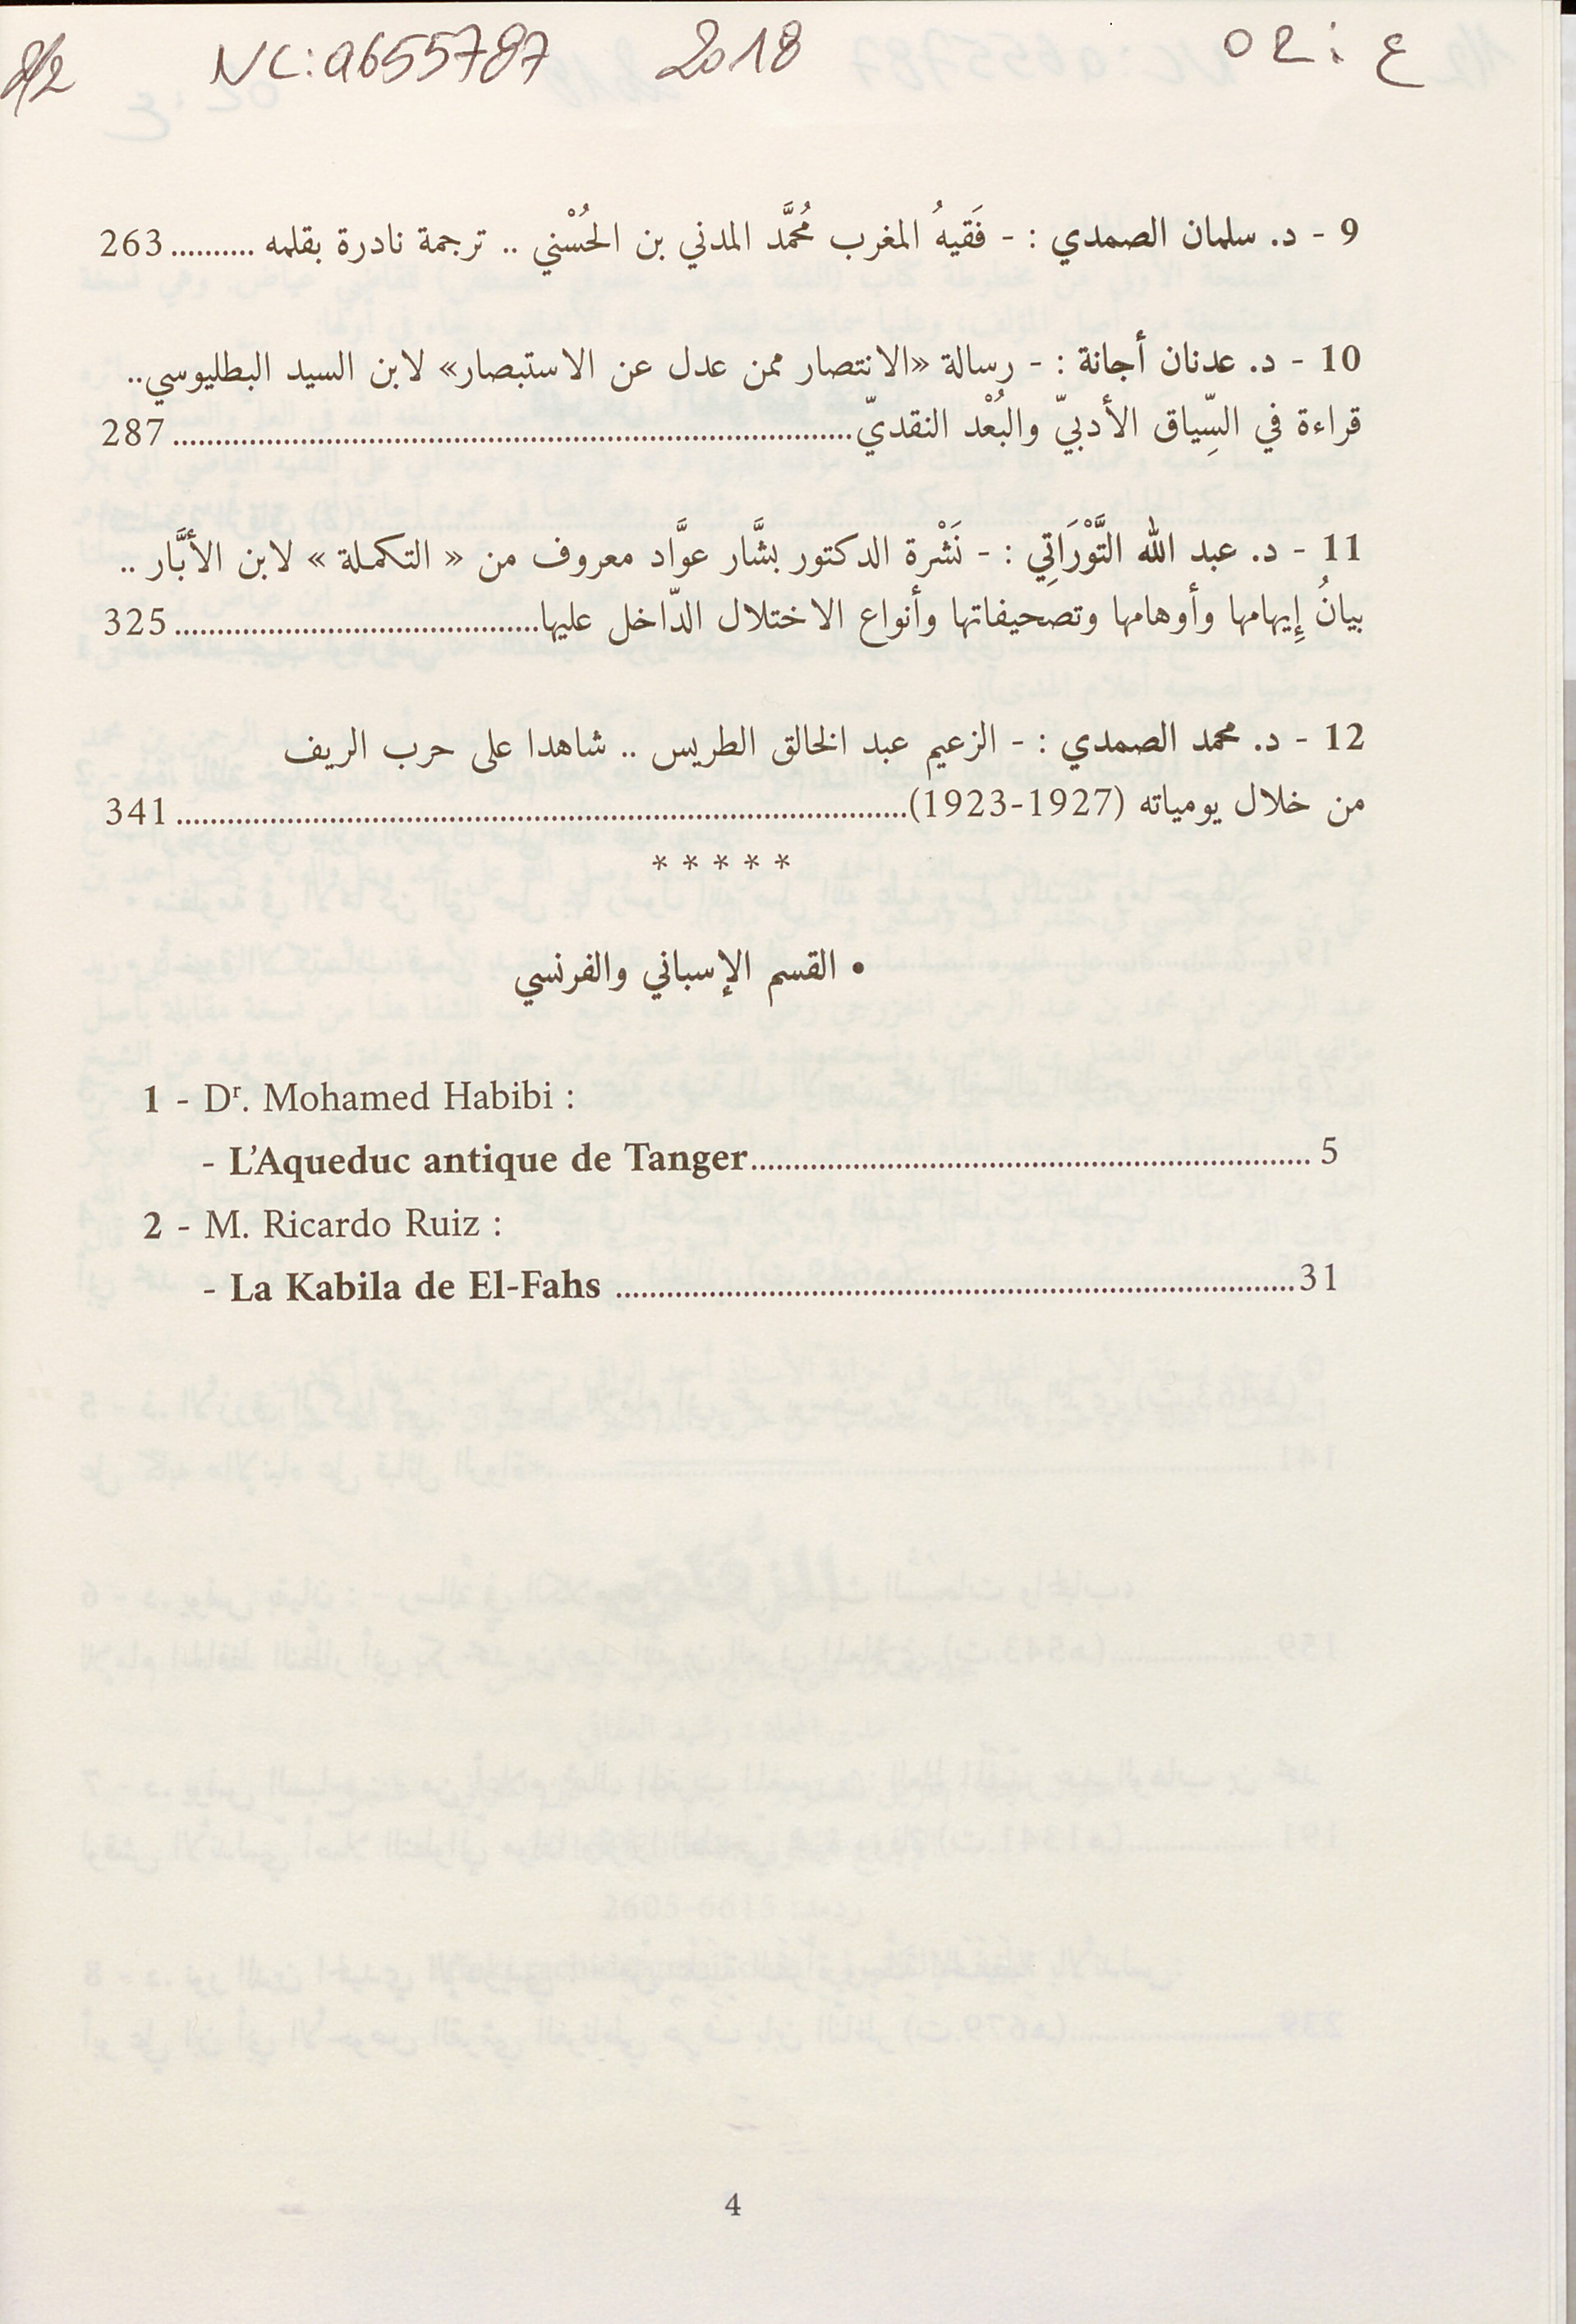 2/2 NC: a655787 2018 ع: 02
9 - د. سلمان الصمدي : - فَقيهُ المغرب مُحمَّد المدني بن الحُسْني .. ترجمة نادرة بقلمه .......... 263
10 - د. عدنان أجانة : - رسالة «الانتصار ممن عدل عن الاستبصار» لابن السيد البطليوسي..
قراءة في السِّياق الأدبيّ والبُعْد النقديّ................................................................................ 287
11 - د. عبد الله التَّوْرَاتِي : - نَشْرة الدكتور بشَّار عوَّاد معروف من « التكملة » لابن الأبَّار ..
بيانُ إِيهامها وأوهامها وتصحيفاتها وأنواع الاختلال الدّاخل عليها........................................... 325
12 - د. محمد الصمدي : - الزعيم عبد الخالق الطريس .. شاهدا على حرب الريف
من خلال يومياته (1927-1923)...................................................................................... 341
* * * * *
• القسم الإسباني والفرنسي
1 - Dʳ. Mohamed Habibi :
- L’Aqueduc antique de Tanger.................................................................. 5
2 - M. Ricardo Ruiz :
- La Kabila de El-Fahs ................................................................................31
4